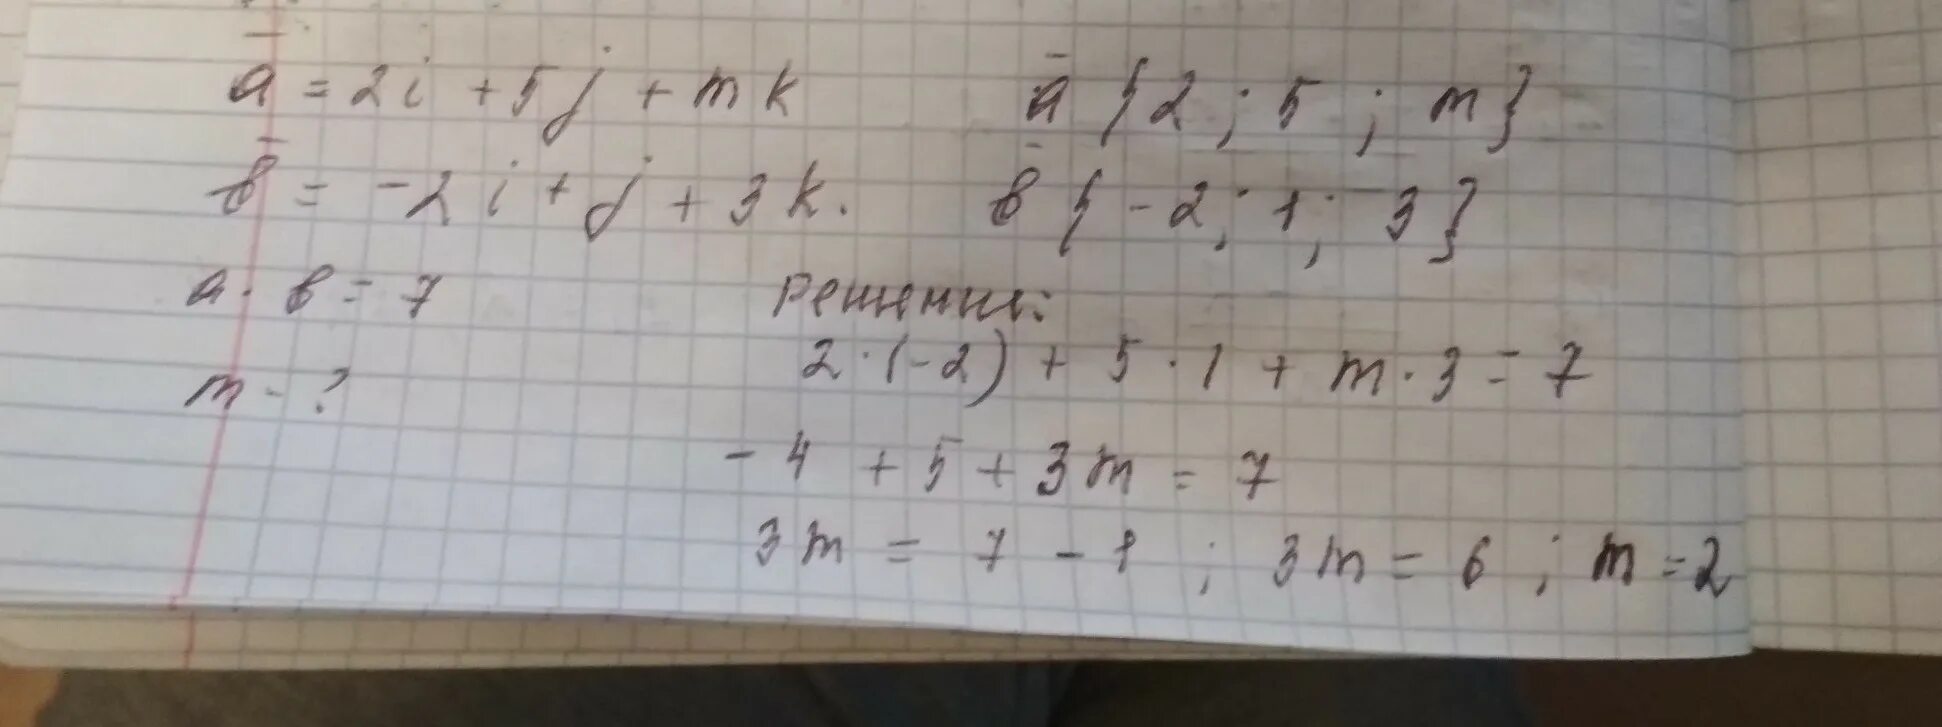 ā = 2i + 5j + mk    ā {2 ; 5 ; m}
b̄ = -2i + j + 3k.    b̄ {-2; 1; 3}
a · b = 7    Решение:
m - ?    2·(-2) + 5·1 + m·3 = 7
-4 + 5 + 3m = 7
3m = 7 - 1 ; 3m = 6 ; m = 2